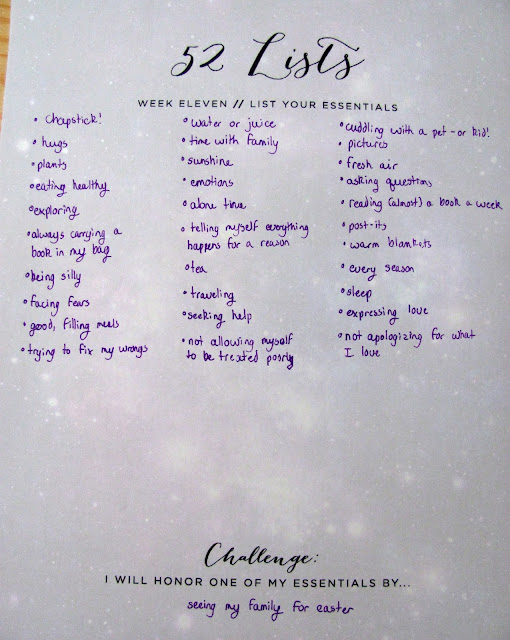 52 Lists
WEEK ELEVEN // LIST YOUR ESSENTIALS
• Chapstick!
• hugs
• plants
• eating healthy
• exploring
• always carrying a
book in my bag
• being silly
• facing fears
• good, filling meals
• trying to fix my wrongs
• water or juice
• time with family
• sunshine
• emotions
• alone time
• telling myself everything
happens for a reason
• tea
• traveling
• seeking help
• not allowing myself
to be treated poorly
• cuddling with a pet - or kid!
• pictures
• fresh air
• asking questions
• reading (almost) a book a week
• post-its
• warm blankets
• every season
• sleep
• expressing love
• not apologizing for what
I love
Challenge:
I WILL HONOR ONE OF MY ESSENTIALS BY...
seeing my family for easter